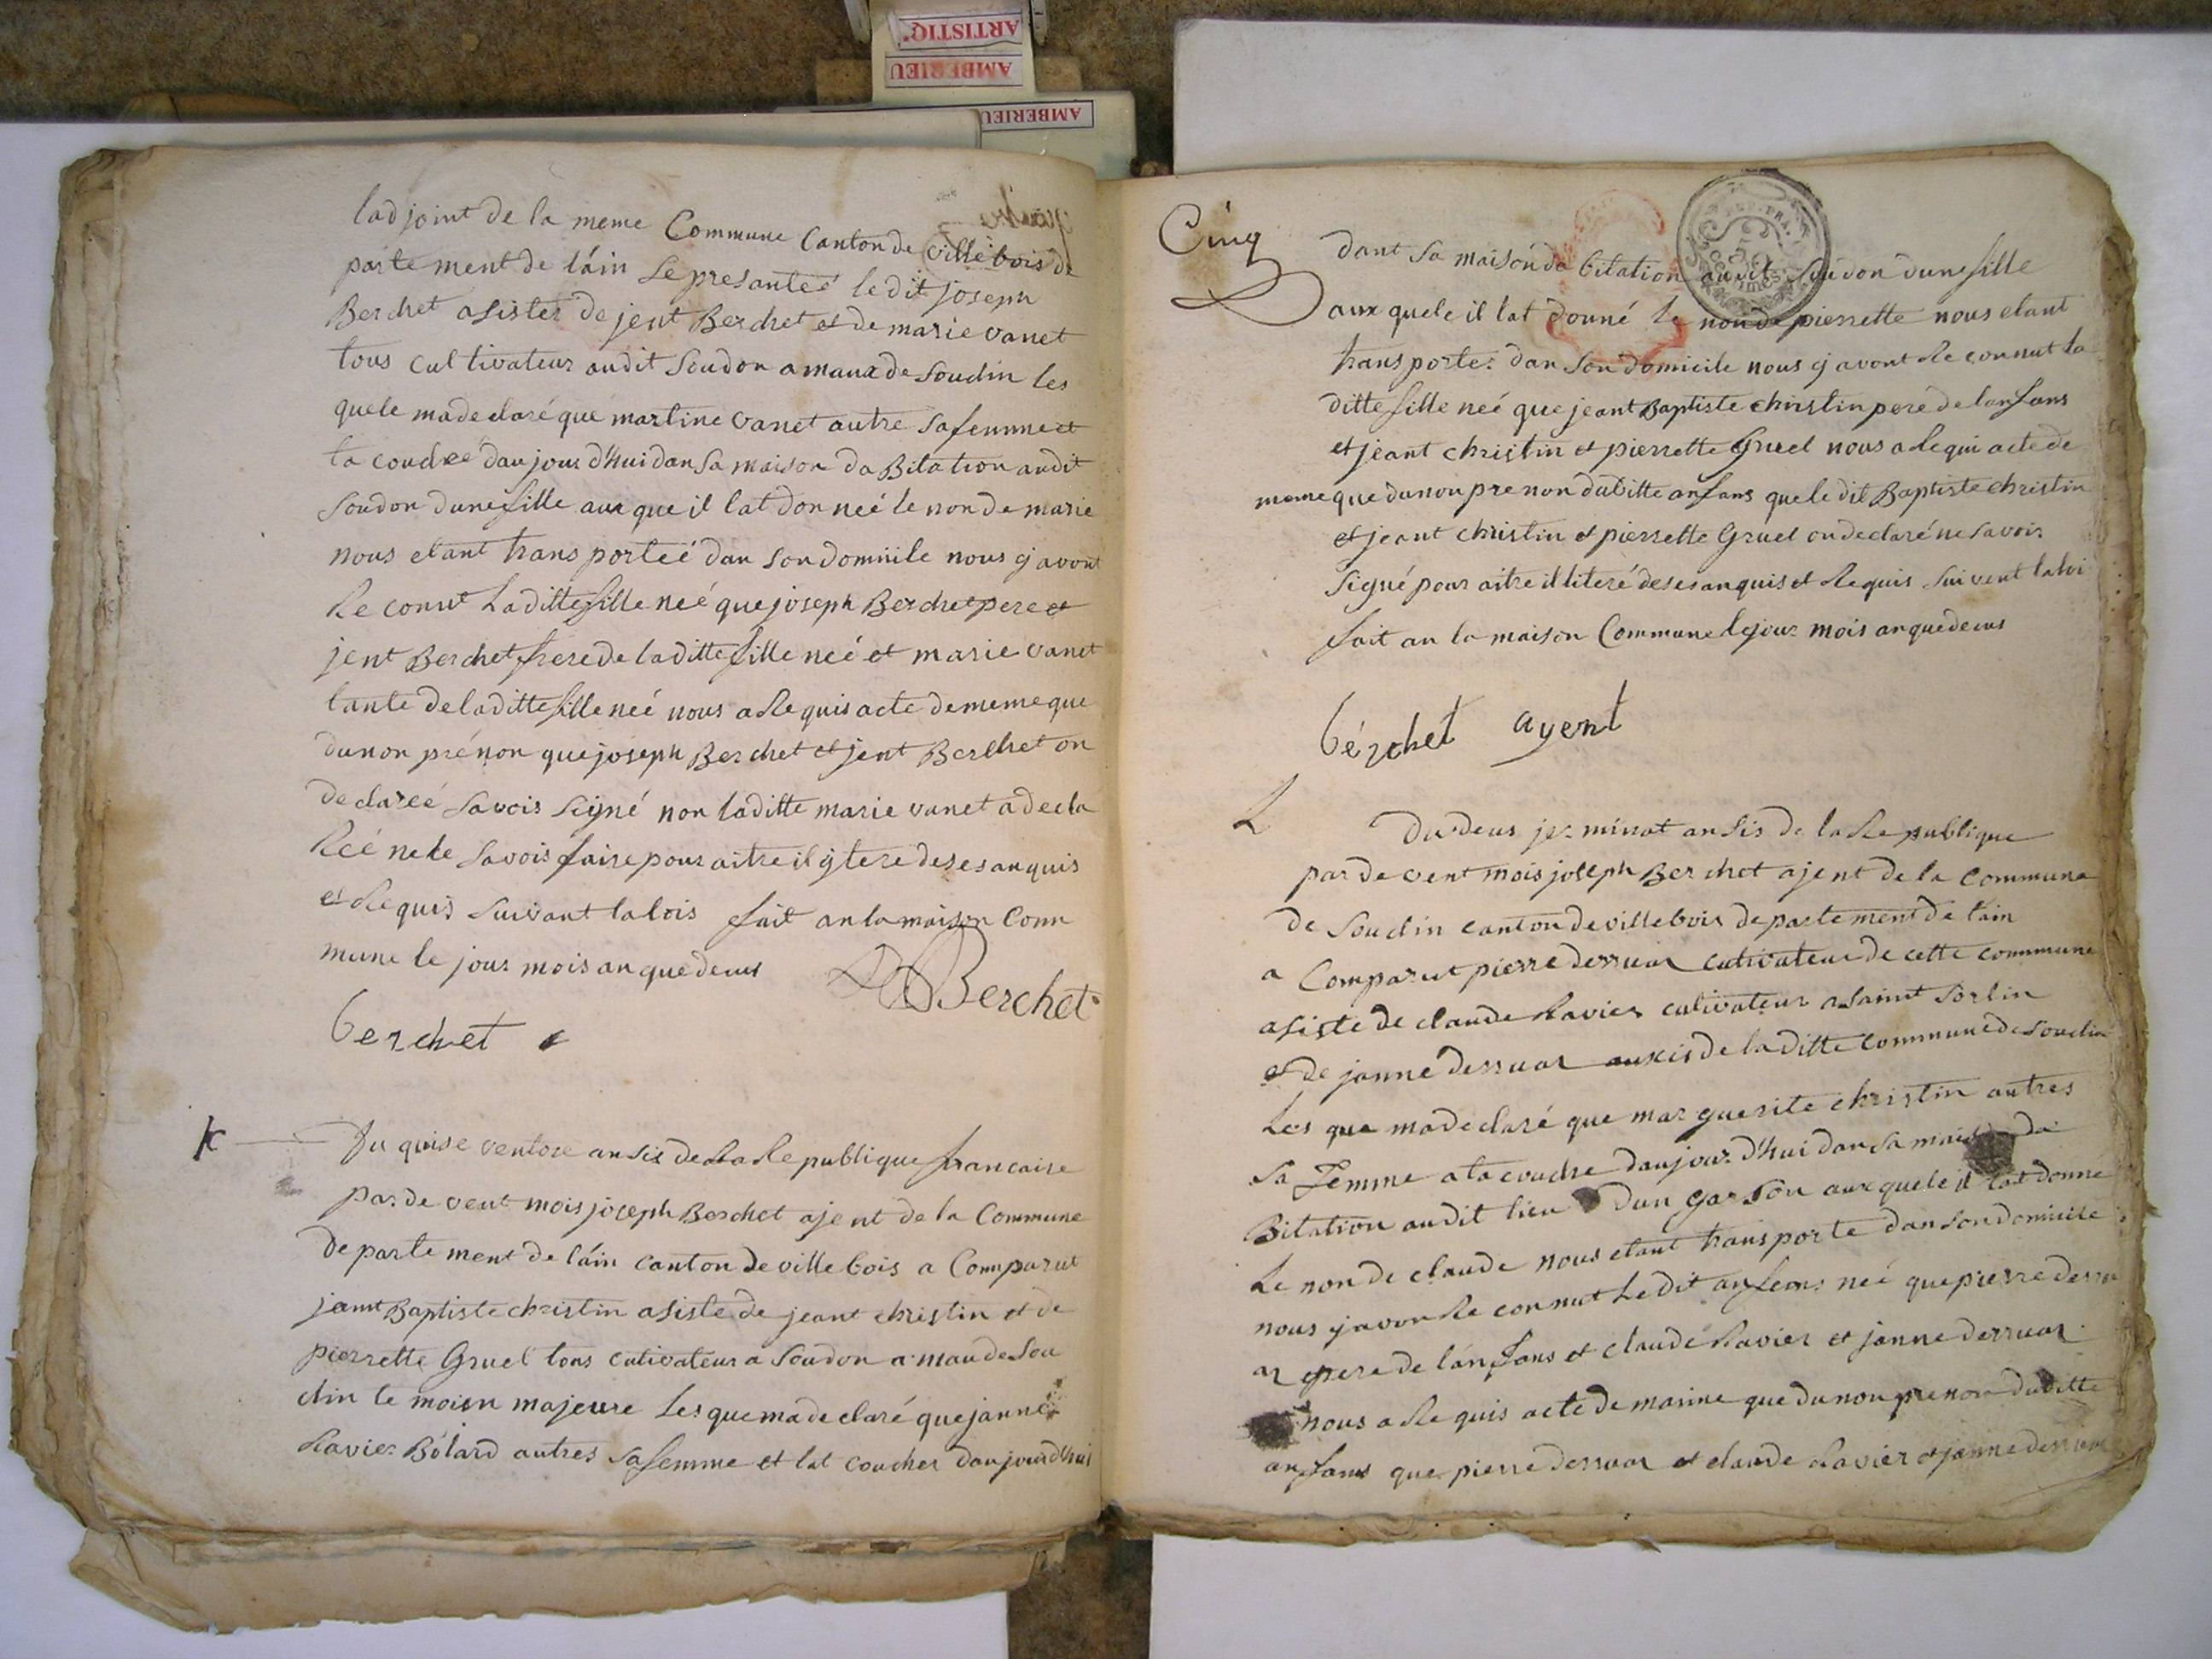 ARTISTIQ
AMBERIEU
AMBERIEU
ladjoint de la meme Commune Canton de villebois de
parte ment de láin se presanteé le dit joseph
Berchet asister de jent Berchet et de marie vanet
tous cultivateur audit Soudon amaux de Soudin les
quele madeclaré que martine vanet autre safemme et
ta coucheé daujour dhui dan sa maison da Bitation audit
Soudon dune fille aux que il lat donneé le non de marie
nous etant trans porteé dan son domiile nous y avont
Re connut Laditte fille neé que joseph Berchet pere et
jent Berchet frere de laditte fille neé et marie vanet
tante deladitte fille neé nous a Requis acte dememe que
dunon prénon que joseph Berchet et jent Berchet on
declareé savois signé non laditte marie vanet a decla
Reé nele savois faire pour aitre il ytere desesanquis
et Requis suivant la lois fait an la maison Com
mune le jour mois an que decus
Berchet
berchet
Du quise ventose an sis dela Re publique francaise
par de vent mois joseph Berchet ajent de la Commune
de parte ment de láin canton de villebois a Comparut
jeant Baptiste christin asiste de jeant christin et de
pierrette Gruel tous cutivateur a Soudon a maude Sou
din te moien majeure Les que madeclaré que janne
Ravier Bolard autres sa femme et lat coucher daujourdhui
Cinq
dant sa maison da bitation audit Soudon dune fille
aux quele il lat donné le non de pierrette nous etant
trans porter dan son domicile nous y avont Re connut la
ditte fille neé que jeant Baptiste christin pere de lanfans
et jeant christin et pierrette Gruel nous a Requi acte de
meme que dunon prenon dubitte anfans que le dit Baptiste christin
et jeant christin et pierrette Gruel on declaré ne savoir
signé pour aitre illiteré desesanquis et Requis suivent la loi
fait an la maison Commune le jour mois an que decus
bérchet ayent
L
Du deus jer minat an sis de la Re publique
par de vent mois joseph Berchet ajent de la Commune
de Soudin canton de villebois de parte ment de láin
a Comparut pierre derruar cutivateur de cette commune
asiste de claude Ravier cutivateur a saint Sorlin
et de janne derruar auxis de laditte commune de Soudin
Les que madeclaré que marguerite christin autres
sa femme a ta couche daujour dhui dan sa maison da
Bitation audit lieu dun garson aux quele il lat donné
Le non de claude nous etant trans porte dan son domicile
nous y avon Re connut Ledit anfans neé que pierre derru
ar pere de lánfans et claude Ravier et janne derruar
nous a Re quis acte de maime que dunon prenon dubitte
anfans que pierre derruar et claude Ravier et janne derruar